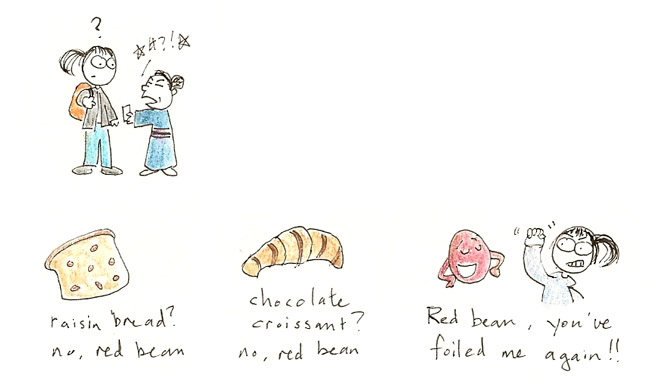 ?
☆#?!☆
raisin bread?
no, red bean
chocolate
croissant?
no, red bean
Red bean, you've
foiled me again!!